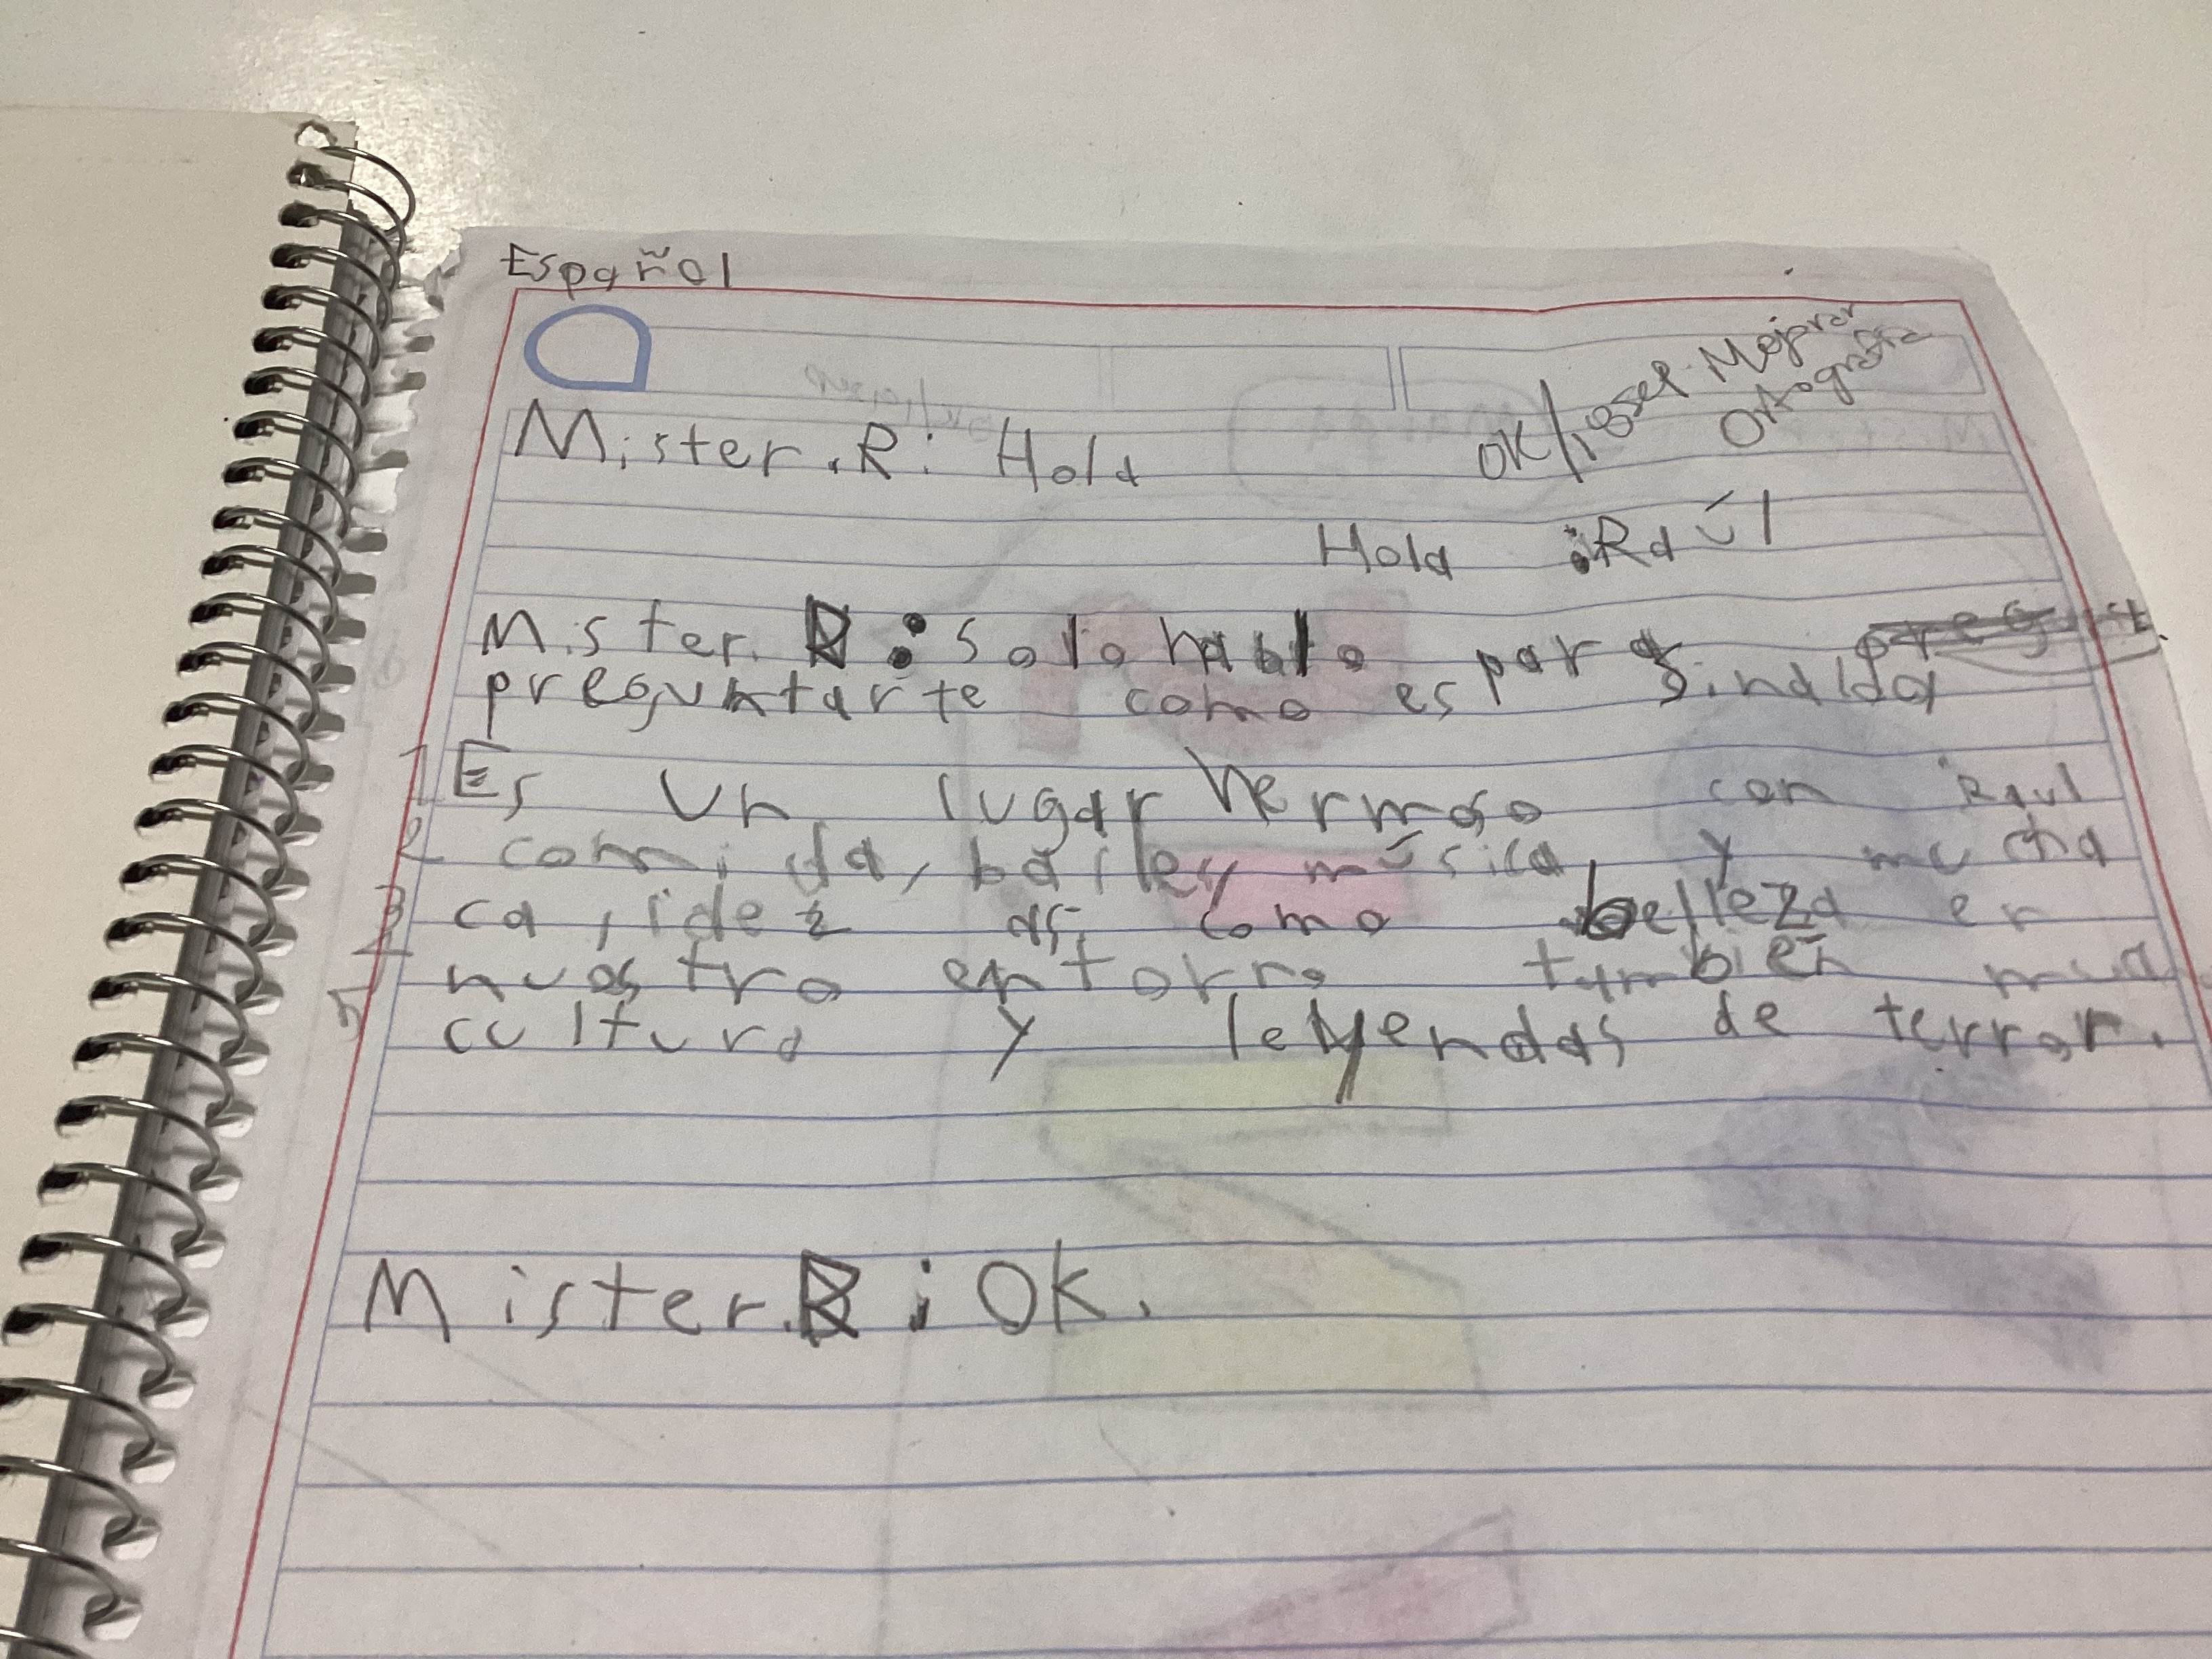 Español
OK/ Mejorar
Ortografía
Mister.R: Hola
Hola :Raúl
Mister. R : solo hablo para
preguntarte como es Sinaloa
1 Es un lugar hermoso con :Raul
2 comida, baile, música, y mucha
3 calidez así como belleza en
nuestro entorno también
5 cultura y leyendas de terror.
Mister.R : OK.